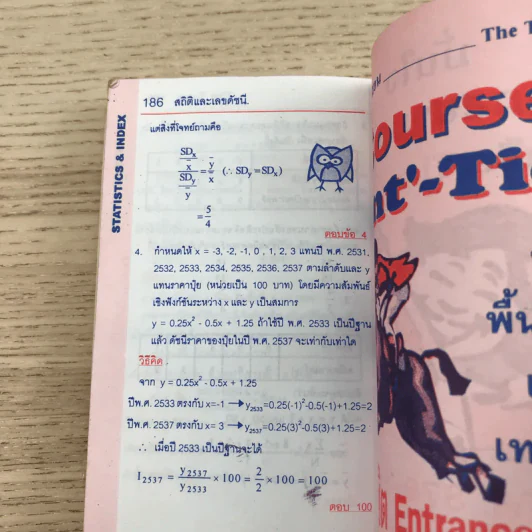 186 สถิติและเลขดัชนี.
STATISTICS & INDEX
แต่สิ่งที่โจทย์ถามคือ
SDx/x̄ / SDy/ȳ = ȳ/x̄ (∴ SDy = SDx)
= 5/4
ตอบข้อ 4
4. กำหนดให้ x = -3, -2, -1, 0 , 1, 2, 3 แทนปี พ.ศ. 2531,
2532, 2533, 2534, 2535, 2536, 2537 ตามลำดับและ y
แทนราคาปุ๋ย (หน่วยเป็น 100 บาท) โดยมีความสัมพันธ์
เชิงฟังก์ชันระหว่าง x และ y เป็นสมการ
y = 0.25x² - 0.5x + 1.25 ถ้าใช้ปี พ.ศ. 2533 เป็นปีฐาน
แล้ว ดัชนีราคาของปุ๋ยในปี พ.ศ. 2537 จะเท่ากับเท่าใด
วิธีคิด
จาก y = 0.25x² - 0.5x + 1.25
ปีพ.ศ. 2533 ตรงกับ x=-1 → y2533=0.25(-1)²-0.5(-1)+1.25=2
ปีพ.ศ. 2537 ตรงกับ x= 3 → y2537=0.25(3)²-0.5(3)+1.25=2
∴ เมื่อปี 2533 เป็นปีฐานจะได้
I2537 = y2537/y2533 × 100 = 2/2 × 100 = 100
ตอบ 100
The T
ourse
nt'-Ti
พื้น
เท
Entrance